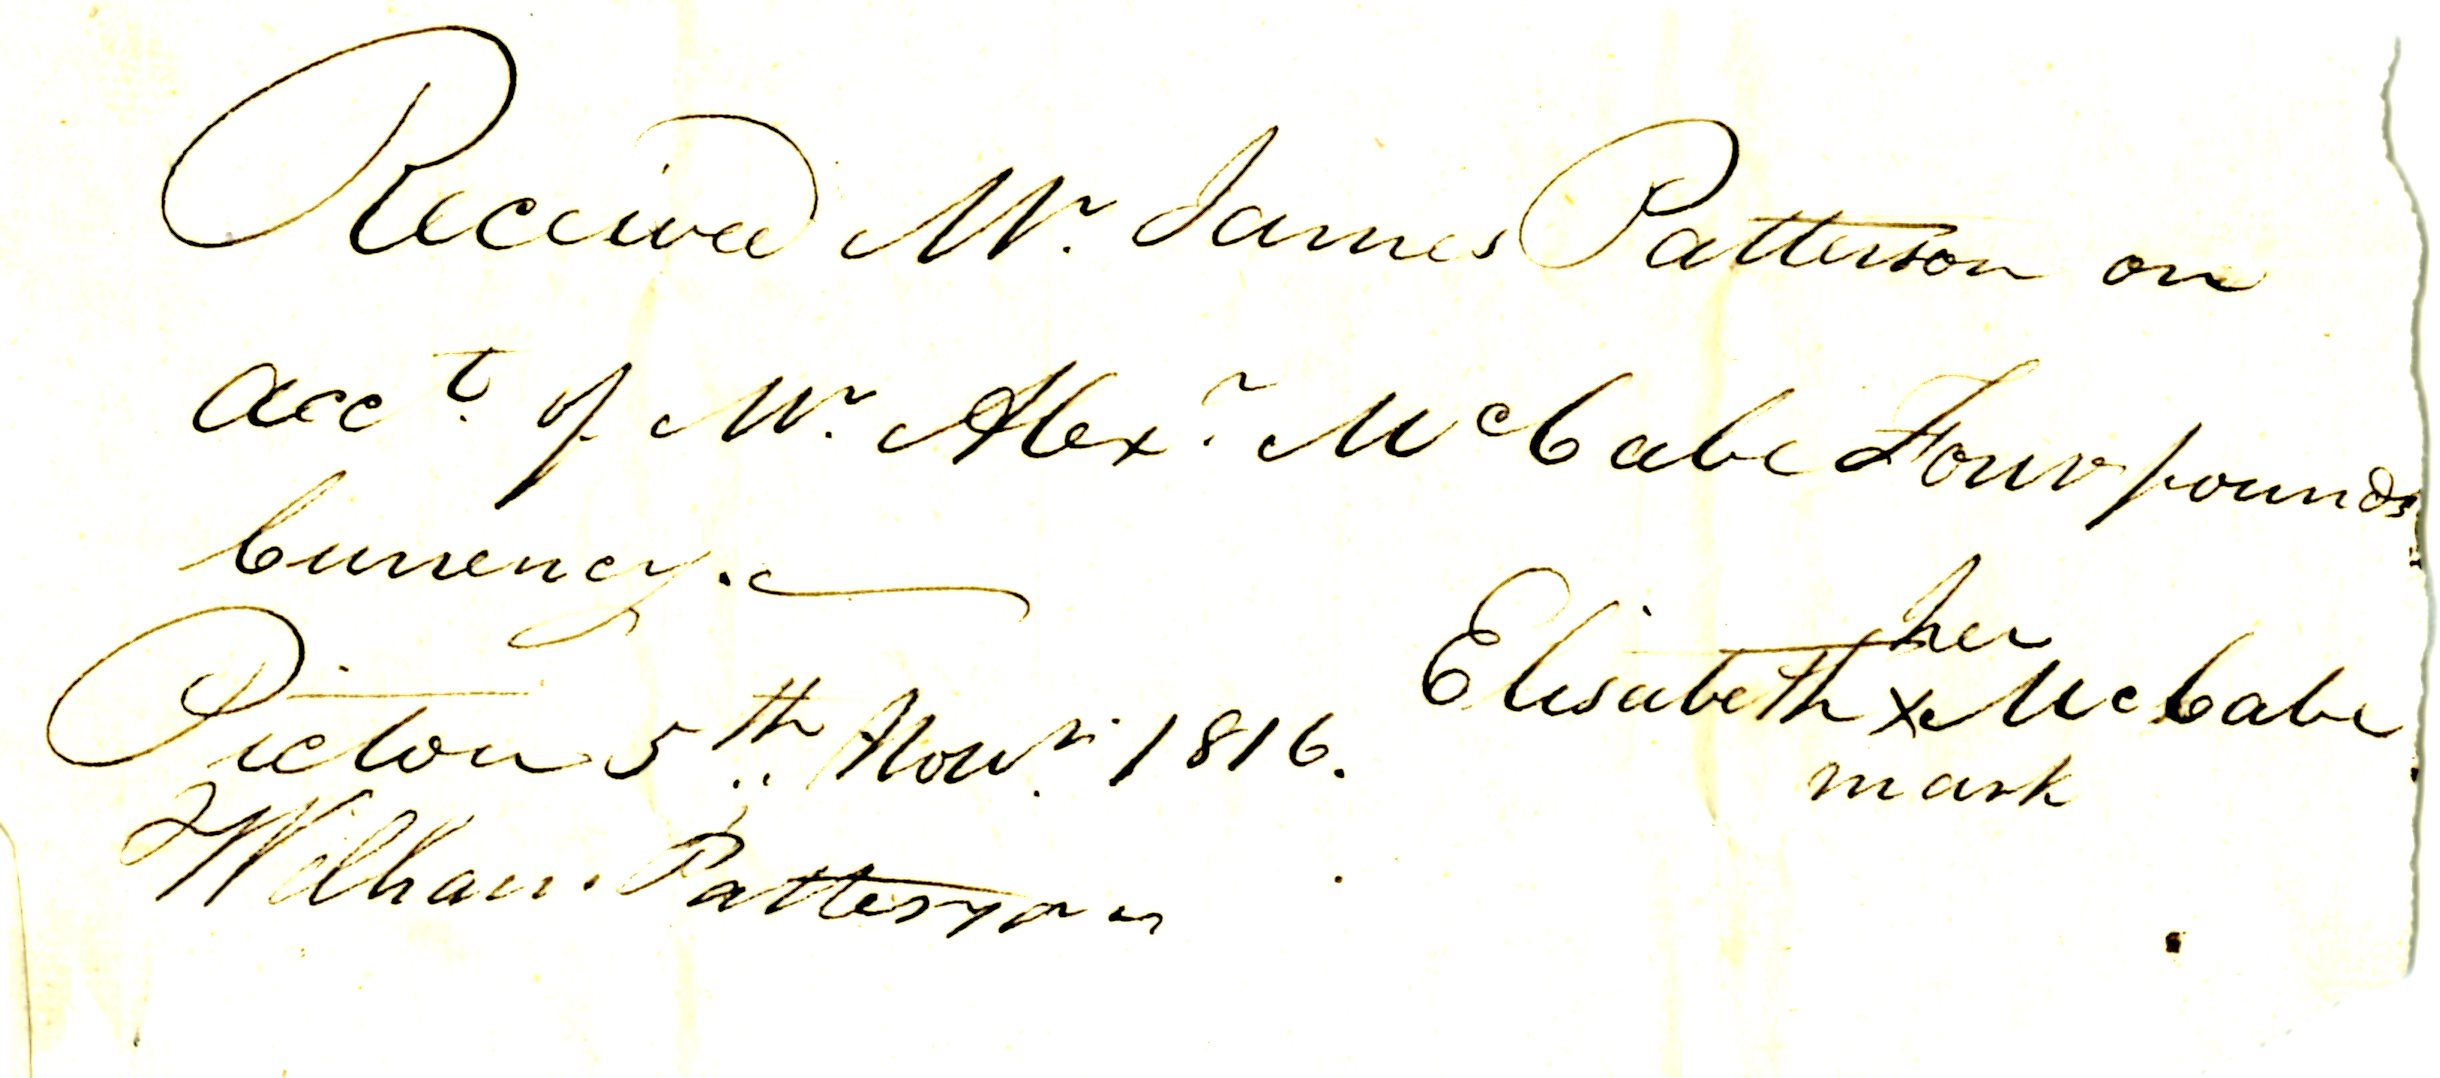 Received Mr. James Patterson on
acct. of Mr. Alexr. McCabe Four pounds
Currency.
her
Elisabeth x McCabe
mark
Picton 5th Novr. 1816.
William Patterson